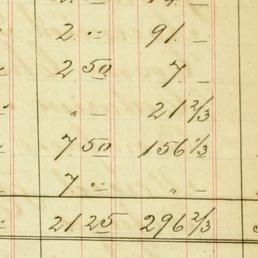 2. " 91. –
2 50 7. –
" – 21 2/3
7. 50 156 1/3
7. " " –
21.25 296 2/3